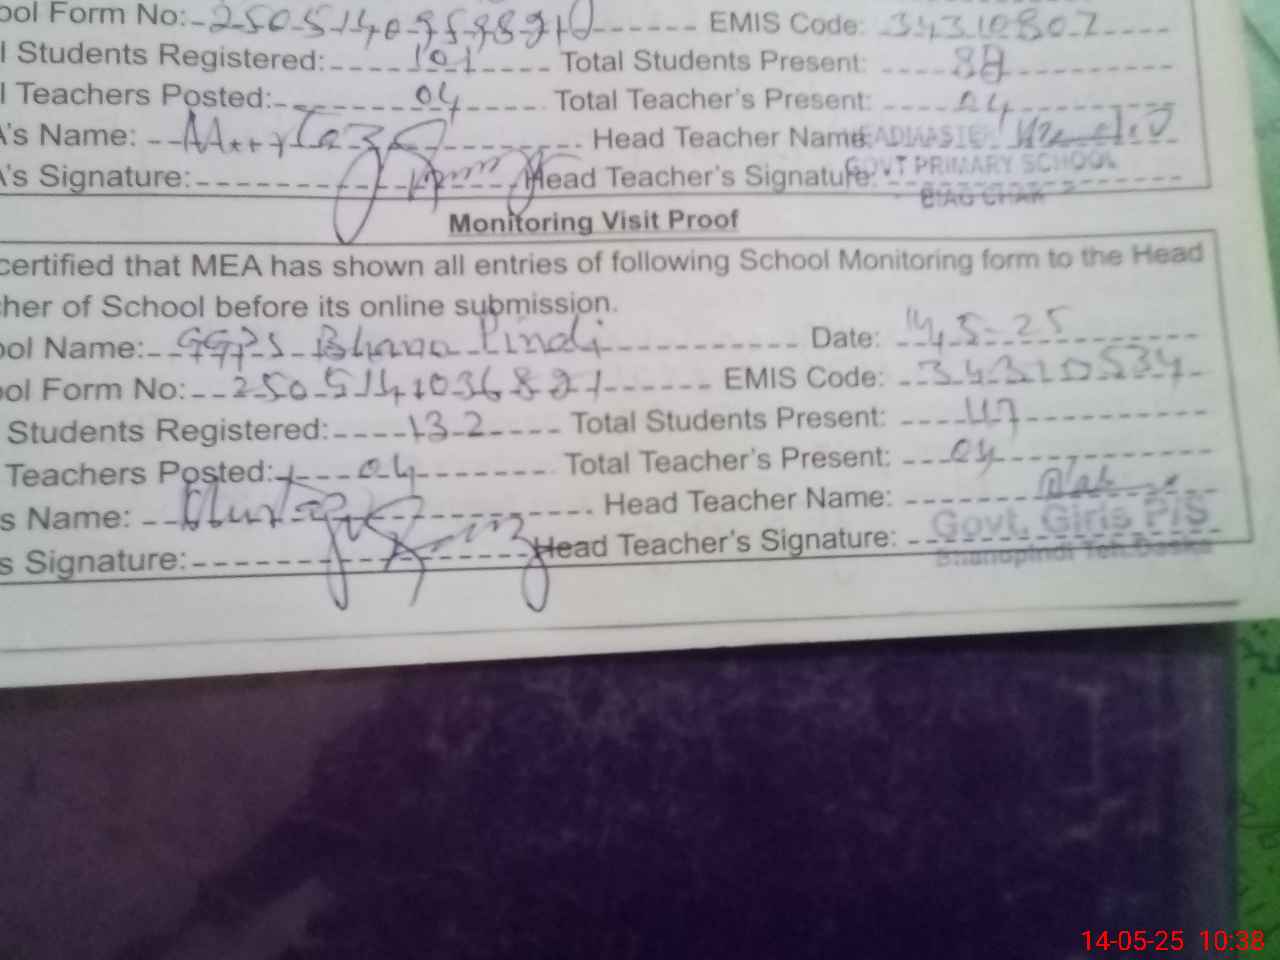 ool Form No: EMIS Code: 34310802
l Students Registered: 101 Total Students Present:
l Teachers Posted: 04 Total Teacher's Present: 04
A's Name: Head Teacher Name: HEADMASTER
A's Signature: Head Teacher's Signature: GOVT PRIMARY SCHOOL
Monitoring Visit Proof
certified that MEA has shown all entries of following School Monitoring form to the Head
cher of School before its online submission.
ool Name: GGPS Bhano Pindi Date: 14-5-25
ool Form No: 2505141036821 EMIS Code: 34310534
Students Registered: 132 Total Students Present: 47
Teachers Posted: 04 Total Teacher's Present: 04
s Name: Head Teacher Name:
s Signature: Head Teacher's Signature: Govt. Girls P/S
Bhanopindi Teh.Daska
14-05-25 10:38